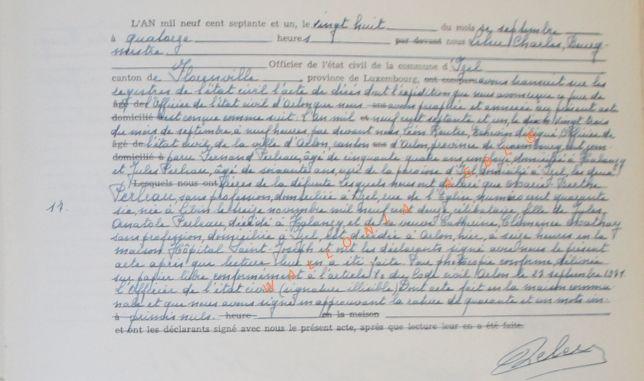 L'AN mil neuf cent septante et un, le vingt huit du mois de septembre
à quatorze heures par devant nous Charles, Bourg-
mestre
Officier de l'état civil de la commune d'Izel
canton de Florenville, province de Luxembourg, ont comparu avons transcrit sur les
registres de l'état civil l'acte de décès dont l'expédition que nous avons reçue de
âgé de l'Officier de l'état civil d'Arlon que nous avons paraphée et annexée au présent est
domicilié est conçue comme suit. L'an mil neuf cent septante et un, le vingt trois
du mois de septembre, à neuf heures par devant nous Léon Officier de
âgé de l'état civil de la ville d'Arlon, canton d'Arlon, province de Luxembourg, ont com-
domicilié à paru Perleau, âgé de cinquante quatre ans, domicilié à Halanzy
et Jules Perleau, âgé de soixante ans, domicilié à Izel, les deux
Lesquels nous ont de la défunte lesquels nous ont déclaré que Marie Berthe
Perleau, sans profession, domiciliée à Izel, rue de l'Eglise, numéro cent quarante
six, née à le huit novembre mil neuf cent deux, célibataire, fille de Jules
14.
Anatole Perleau, décédé à Halanzy et de sa veuve Catherine,
sans profession, domiciliée à Izel, est décédée à Arlon, hier, à heures en la
maison Hôpital Saint Joseph et ont les déclarants signé avec nous le présent
acte après que lecture leur en a été faite. Par photocopie conforme délivrée
sur papier libre conformément à l'article du Code civil Arlon le 27 septembre 1971.
l'Officier de l'état civil (signature illisible) Dont acte fait en la maison commu-
nale et que nous avons signé approuvant la rature de quarante et un mots im-
à primés nuls. heure en la maison
et ont les déclarants signé avec nous le présent acte, après que lecture leur en a été faite.
WALLONIA ASBL